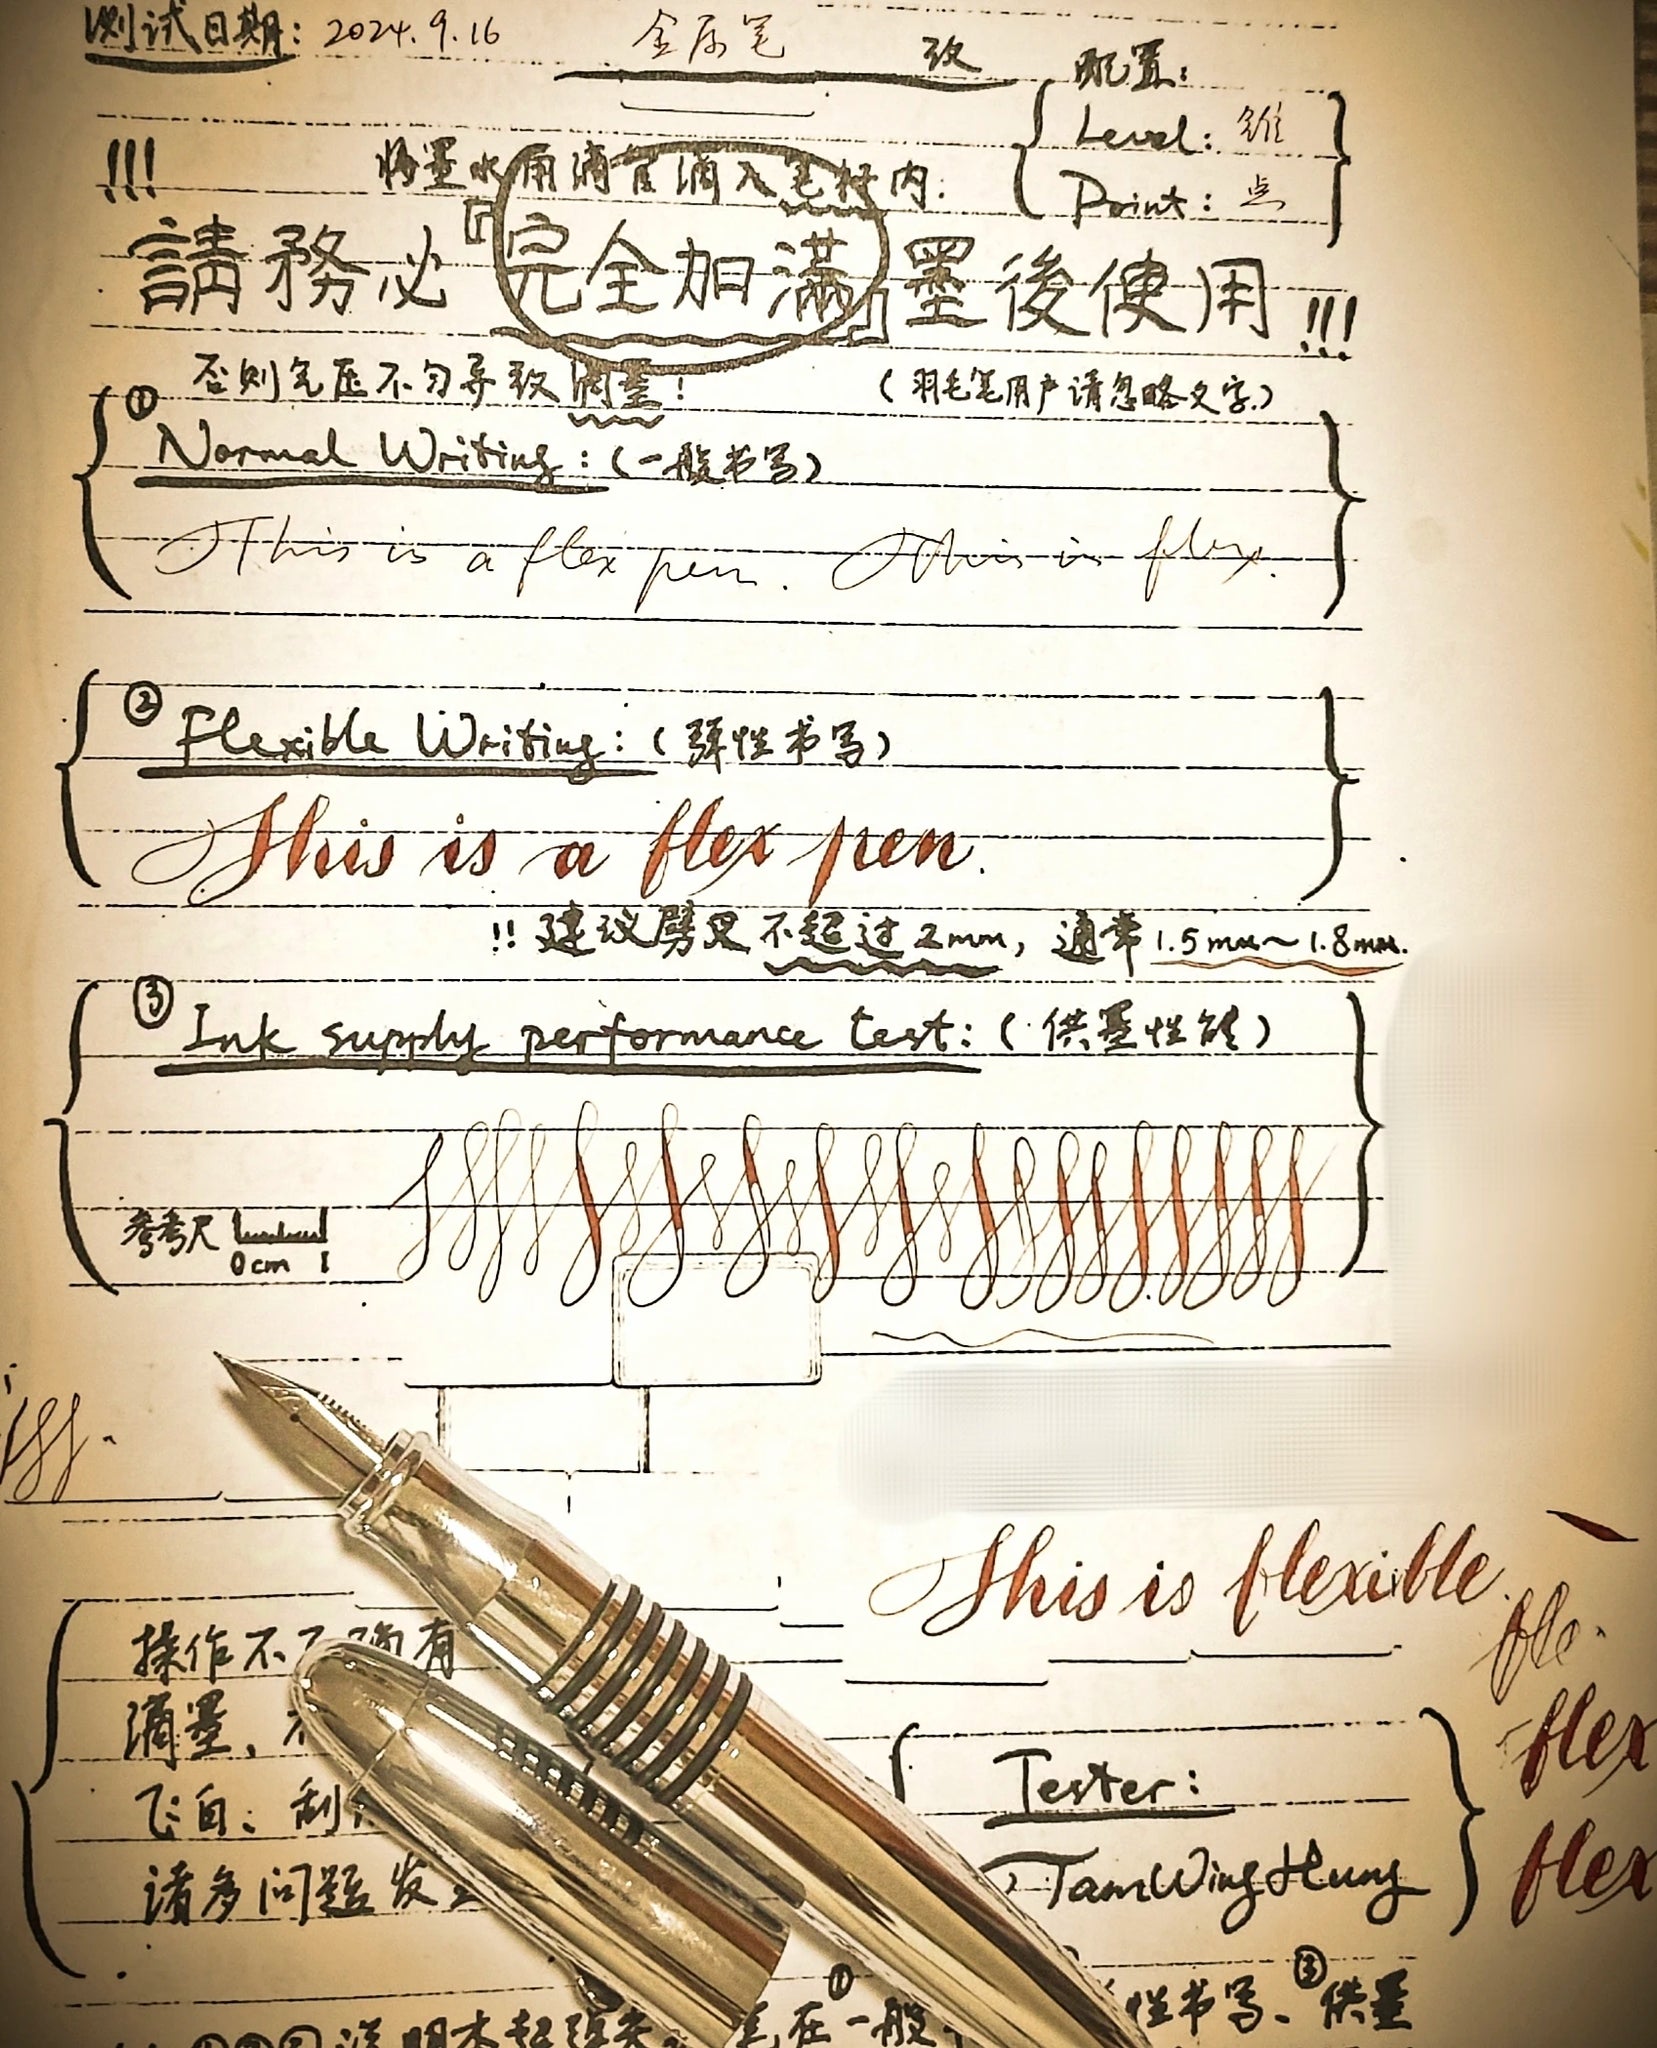 测试日期: 2024.9.16 金属笔 改 配置:
Level: 锥
Point: 点
!!! 将墨水用滴管滴入笔杆内:
請務必『完全加滿』墨後使用!!!
否则气压不匀导致漏墨! (羽毛笔用户请忽略文字.)
① Normal Writing: (一般书写)
This is a flex pen. This is flex.
② Flexible Writing: (弹性书写)
This is a flex pen.
!! 建议劈叉不超过2mm, 通常1.5mm~1.8mm.
③ Ink supply performance test: (供墨性能)
参考尺 0cm 1
This is flexible.
fle.
flex
flex
操作不 有
滴墨、
飞白;
诸多问题发
Tester:
TamWingHung
①②③说明
在①一般 性书写、③供墨